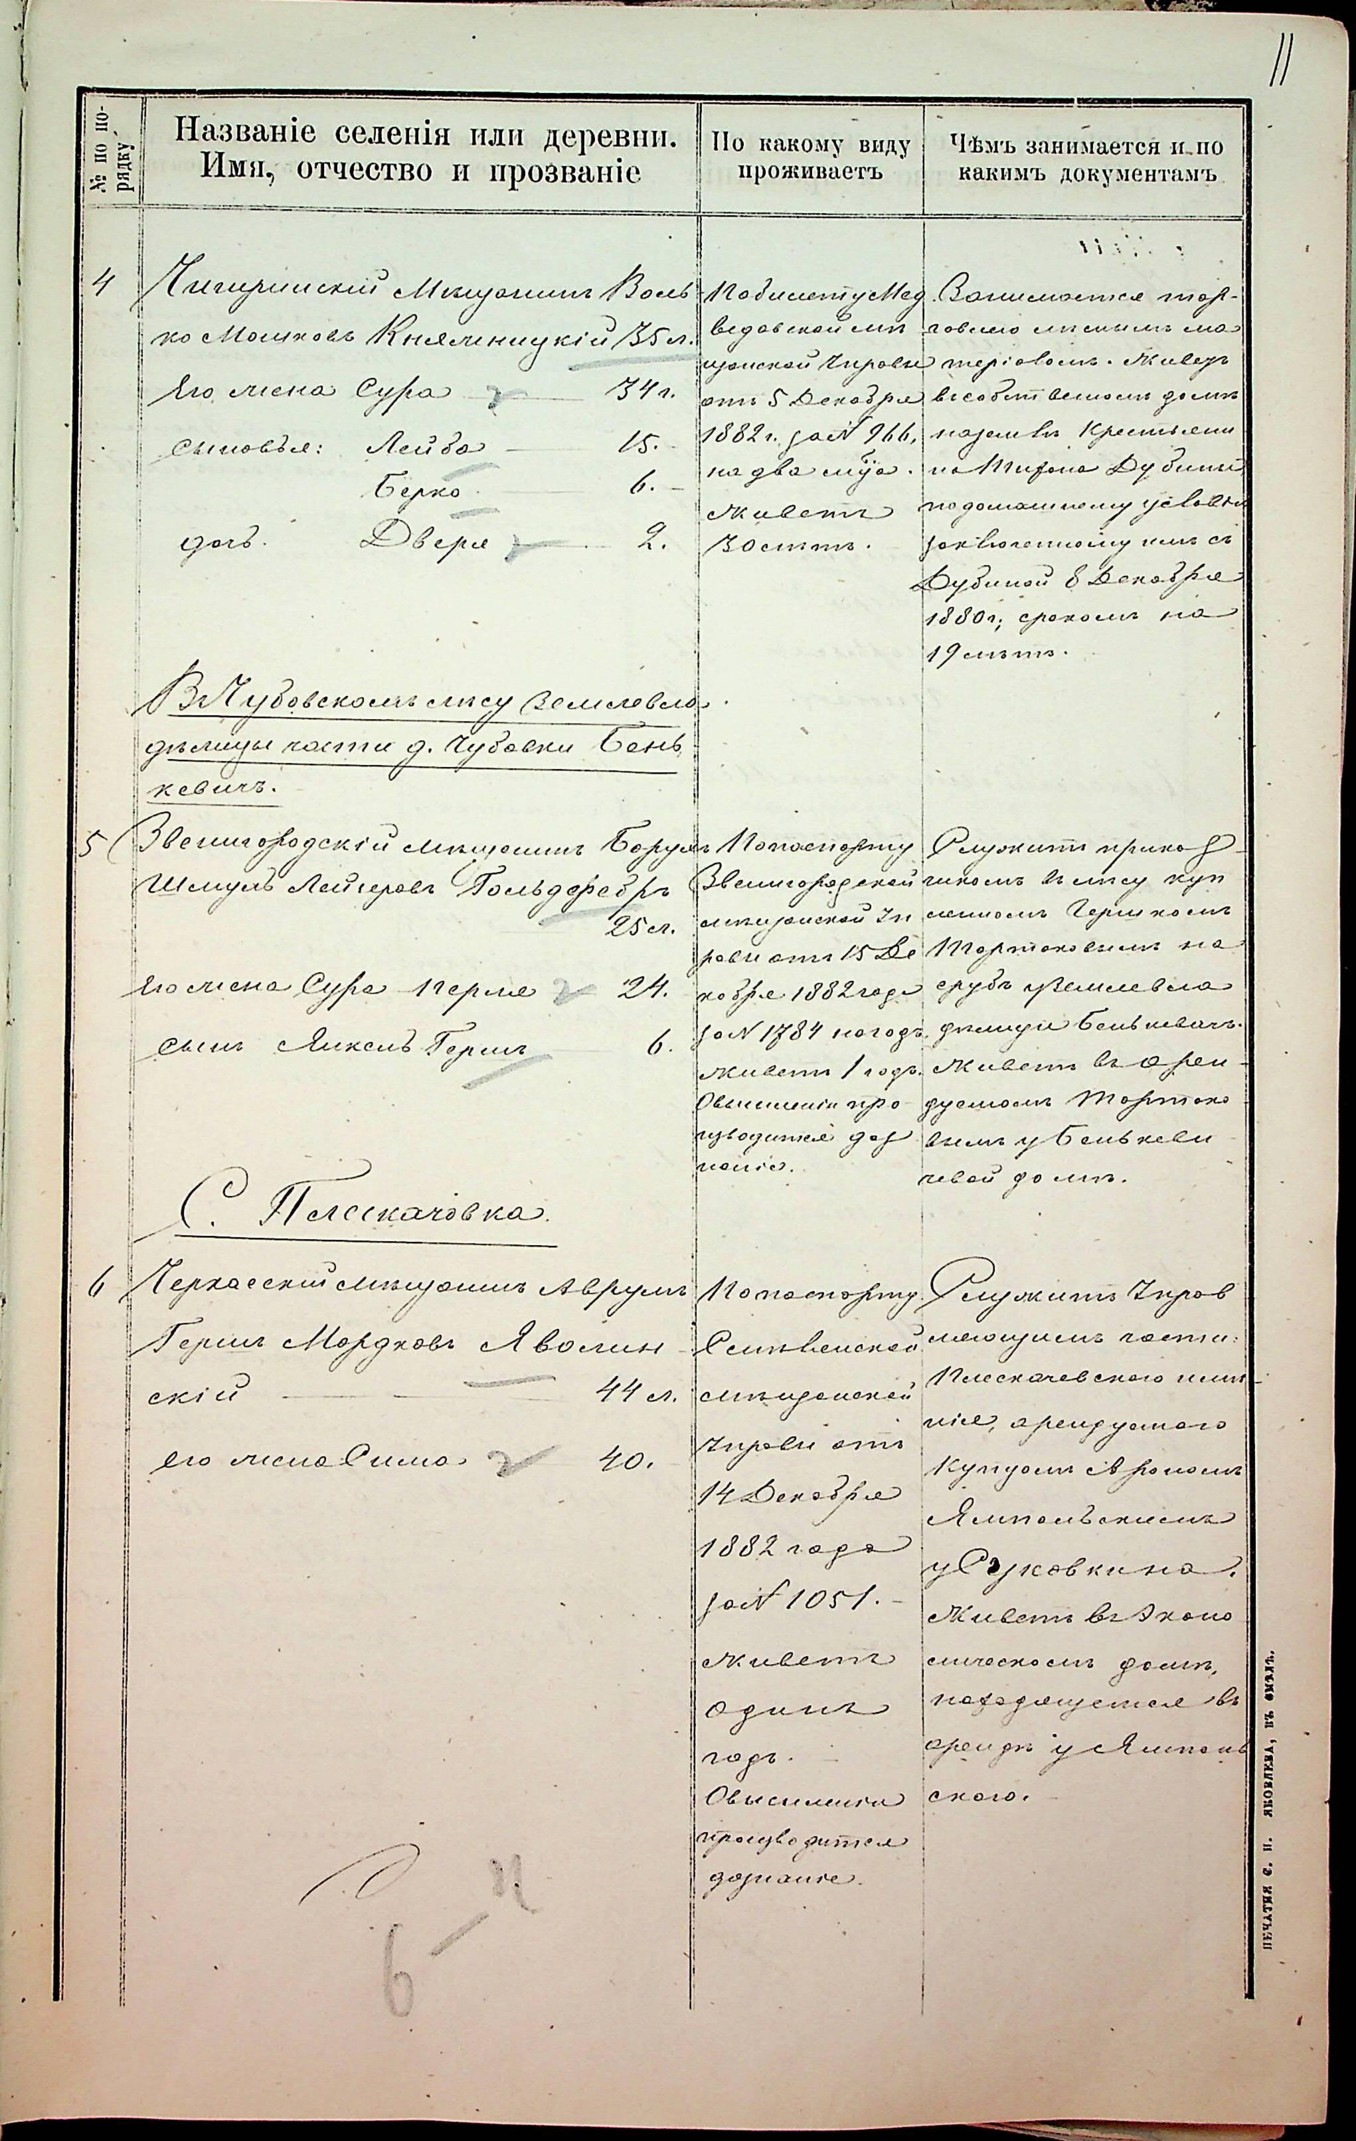 11
№ по по-
рядку
Названіе селенія или деревни.
Имя, отчество и прозваніе
По какому виду
проживаетъ
Чѣмъ занимается и по
какимъ документамъ
4
Чигиринскій Мѣщанинъ Воль
ко Мошковъ Княжницкій 35 л.
Его жена Сура 34 г.
сыновья: Лейба 15.
Берко 6.
дочь. Двера 2.
По билету Мед
ведовской мѣ
щанской Управы
отъ 5 Декабря
1882 г. за № 966,
на два м-ца.
Живетъ
30 лѣтъ.
Занимается тор-
говлею лѣснымъ ма
теріаломъ. Живетъ
въ собственномъ домѣ
на земли крестьяни
на Дубины
по домашнему условію
заключенному имъ съ
Дубиной 8 Декабря
1880 г., срокомъ на
19 лѣтъ.
В Чубовскомъ лѣсу Землевла
дѣлицы части д. Чубовки Бень
кевичъ.
5
Звенигородскій мѣщанинъ Борухъ
Шмуль Лейзеровъ Гольдфебръ
25 л.
Его жена Сура Перля 24.
сынъ Янкель Гершъ 6.
По паспорту
Звенигородской
мѣщанской Уп
равы отъ 15 Де
кабря 1882 года
за № 1784 на годъ.
Живетъ 1 годъ.
О выселеніи про
изводится доз
наніе.
Служитъ приказ
чикомъ въ лѣсу куп
ленномъ Гершкомъ
Тартаковымъ на
срубъ у Землевла
дѣлицы Бенькевичъ.
Живетъ въ арен
дуемомъ Тартако
вымъ у Бенькеви
чевой домѣ.
С. Плескачовка.
6
Черкасскій мѣщанинъ Аврумъ
Гершъ Мордковъ Яволин
скій 44 л.
Его жена Сима 40.
По паспорту
мѣщанской
Управы отъ
14 Декабря
1882 года
за № 1051.
Живетъ
одинъ
годъ.
О выселеніи
производится
дознаніе.
Служитъ Управ
ляющимъ части
Плескачевского имѣ
нія, арендуемаго
купцомъ Арономъ
Ямпольскимъ
у Суковкина.
Живетъ въ Эконо
мическомъ домѣ,
находящемся въ
арендѣ у Ямполь
скаго.
6 – 4
ПЕЧАТНЯ С. Н. ЯКОВЛЕВА, ВЪ СМѢЛѢ.